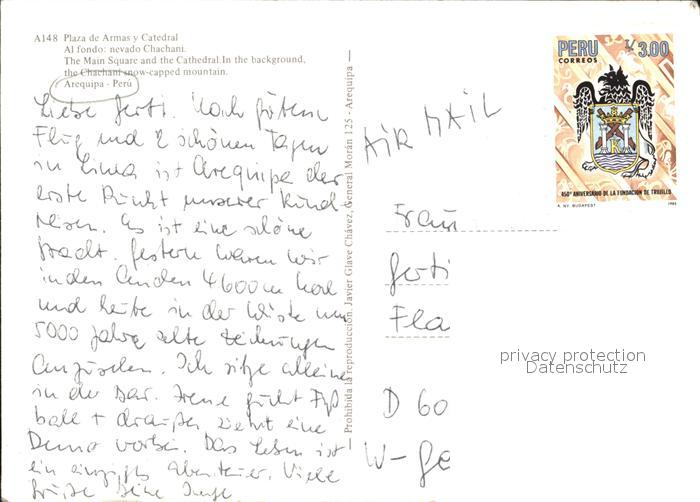 A148 Plaza de Armas y Catedral
Al fondo: nevado Chachani.
The Main Square and the Cathedral.In the background,
the Chachani snow-capped mountain.
Arequipa - Perú
Liebe Gerti. Nach gutem
Flug und 2 schönen Tagen
in Lima ist Arequipa der
erste Punkt unserer Rund-
reisen. Es ist eine schöne
Stadt. Gestern waren wir
in den Anden 4600m hoch
und heute in der Wüste um
5000 Jahre alte Zeichnungen
anzusehen. Ich sitze alleine
in der Bar. Irene guckt Fuß
ball + draußen zieht eine
Demo vorbei. Das Leben ist
ein einziges Abenteuer. Viele
Grüße Deine
Prohibida la reproducción. Javier Glave Chávez, General Morán 125 - Arequipa —
AIR MAIL
PERU I/. 3.00
CORREOS
450° ANIVERSARIO DE LA FUNDACION DE TRUJILLO
A. NY. BUDAPEST 1985
Frau
Gerti
Fla
privacy protection
Datenschutz
D 60
W-Ge